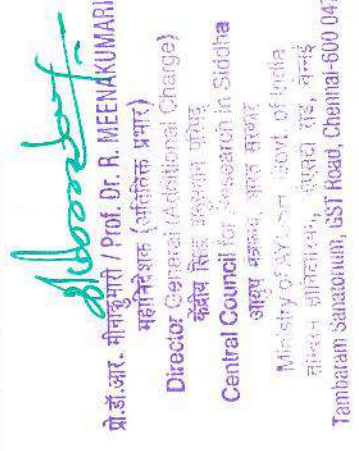 प्रो.डॉ.आर. मीनाकुमारी / Prof. Dr. R. MEENAKUMARI
महानिदेशक (अतिरिक्त प्रभार)
Director General (Additional Charge)
केंद्रीय सिद्ध अनुसंधान परिषद्
Central Council for Research in Siddha
आयुष मंत्रालय, भारत सरकार
Ministry of AYUSH Govt. of India
Tambaram Sanatorium, GST Road, Chennai-600 047